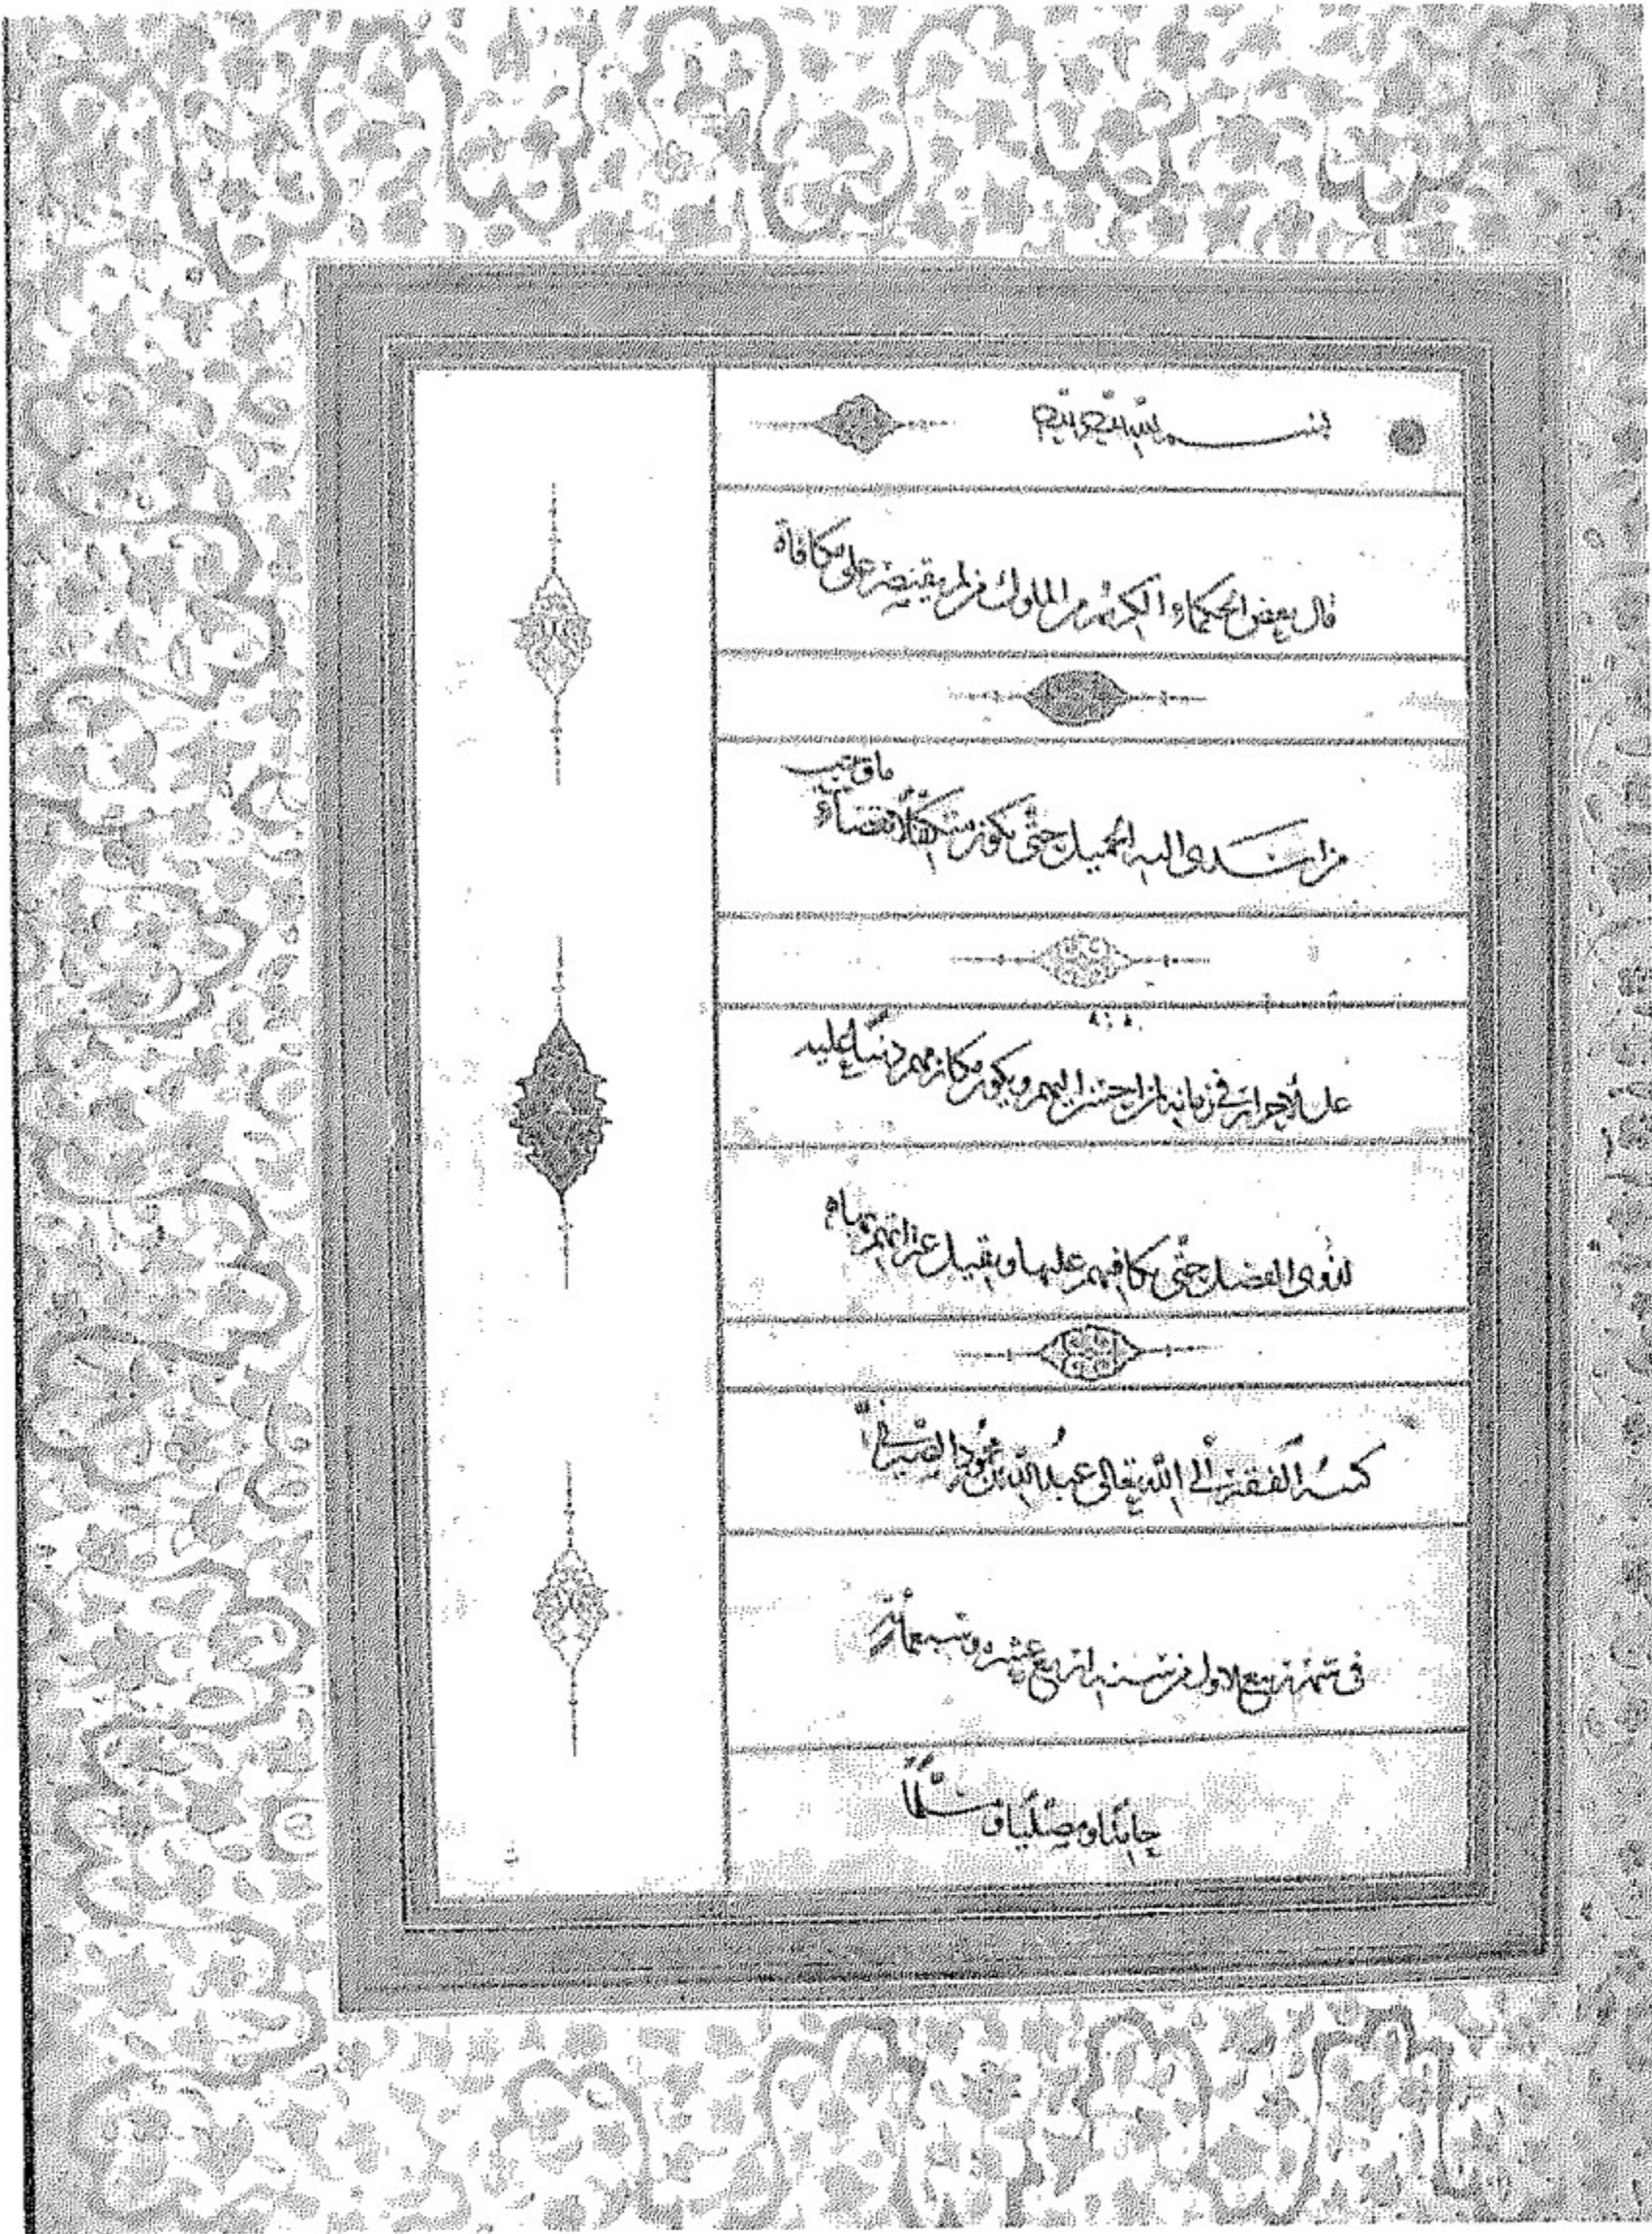 بسم الله الرحمن الرحيم
قال بعض الحكماء الكريم من الملوك من لم يقتصر على مكافاة
من اسدى اليه الجميل حتى يكون متكفلا بقضاء ما وجب
على الاحرار في زمانه لمن احسن اليهم ويكون مكان منهم دينا عليه
لذوي الفضل حتى يكافيهم عليها ويقيل
كتبه الفقير الى الله تعالى عبد الله بن محمود الصيرفي
في شهر ربيع الاول من سنة اربع عشره وسبعمائة
حامدا ومصليا ومسلما